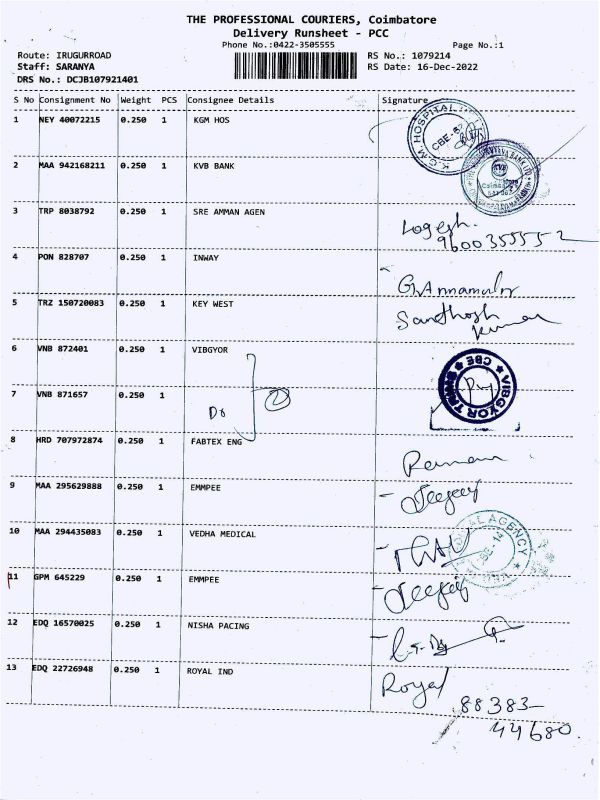 THE PROFESSIONAL COURIERS, Coimbatore
Delivery Runsheet - PCC
Phone No.:0422-3505555 Page No.:1
Route: IRUGURROAD RS No.: 1079214
Staff: SARANYA RS Date: 16-Dec-2022
DRS No.: DCJB107921401
S No Consignment No Weight PCS Consignee Details Signature
1 NEY 40072215 0.250 1 KGM HOS
K.G.M. HOSPITAL
CBE-
2 MAA 942168211 0.250 1 KVB BANK
KVB
3 TRP 8038792 0.250 1 SRE AMMAN AGEN
Logesh.
9600355552
4 PON 828707 0.250 1 INWAY
5 TRZ 150720083 0.250 1 KEY WEST
Santhosh
kumar
6 VNB 872401 0.250 1 VIBGYOR
VIBGYOR
CBE
7 VNB 871657 0.250 1 Do 2
8 HRD 707972874 0.250 1 FABTEX ENG
9 MAA 295629888 0.250 1 EMMPEE
10 MAA 294435083 0.250 1 VEDHA MEDICAL
AGENCY
11 GPM 645229 0.250 1 EMMPEE
12 EDQ 16570025 0.250 1 NISHA PACING
13 EDQ 22726948 0.250 1 ROYAL IND
Royal
88383-
44680.